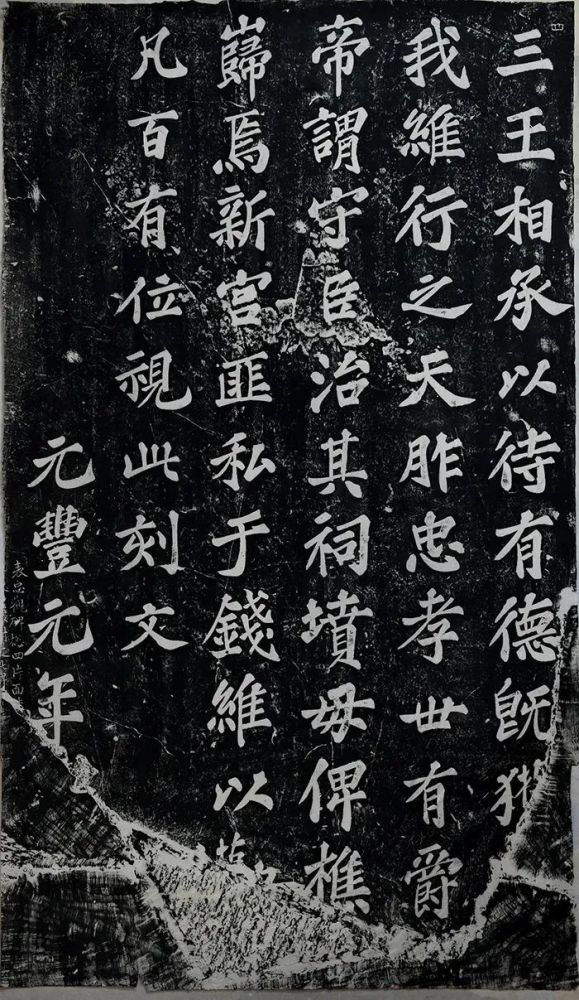 四
三王相承以待有德旣
我維行之天胙忠孝世有爵
帝謂守臣治其祠墳毋俾樵
巋焉新宫匪私于錢維以
凡百有位視此刻文
元豐元年